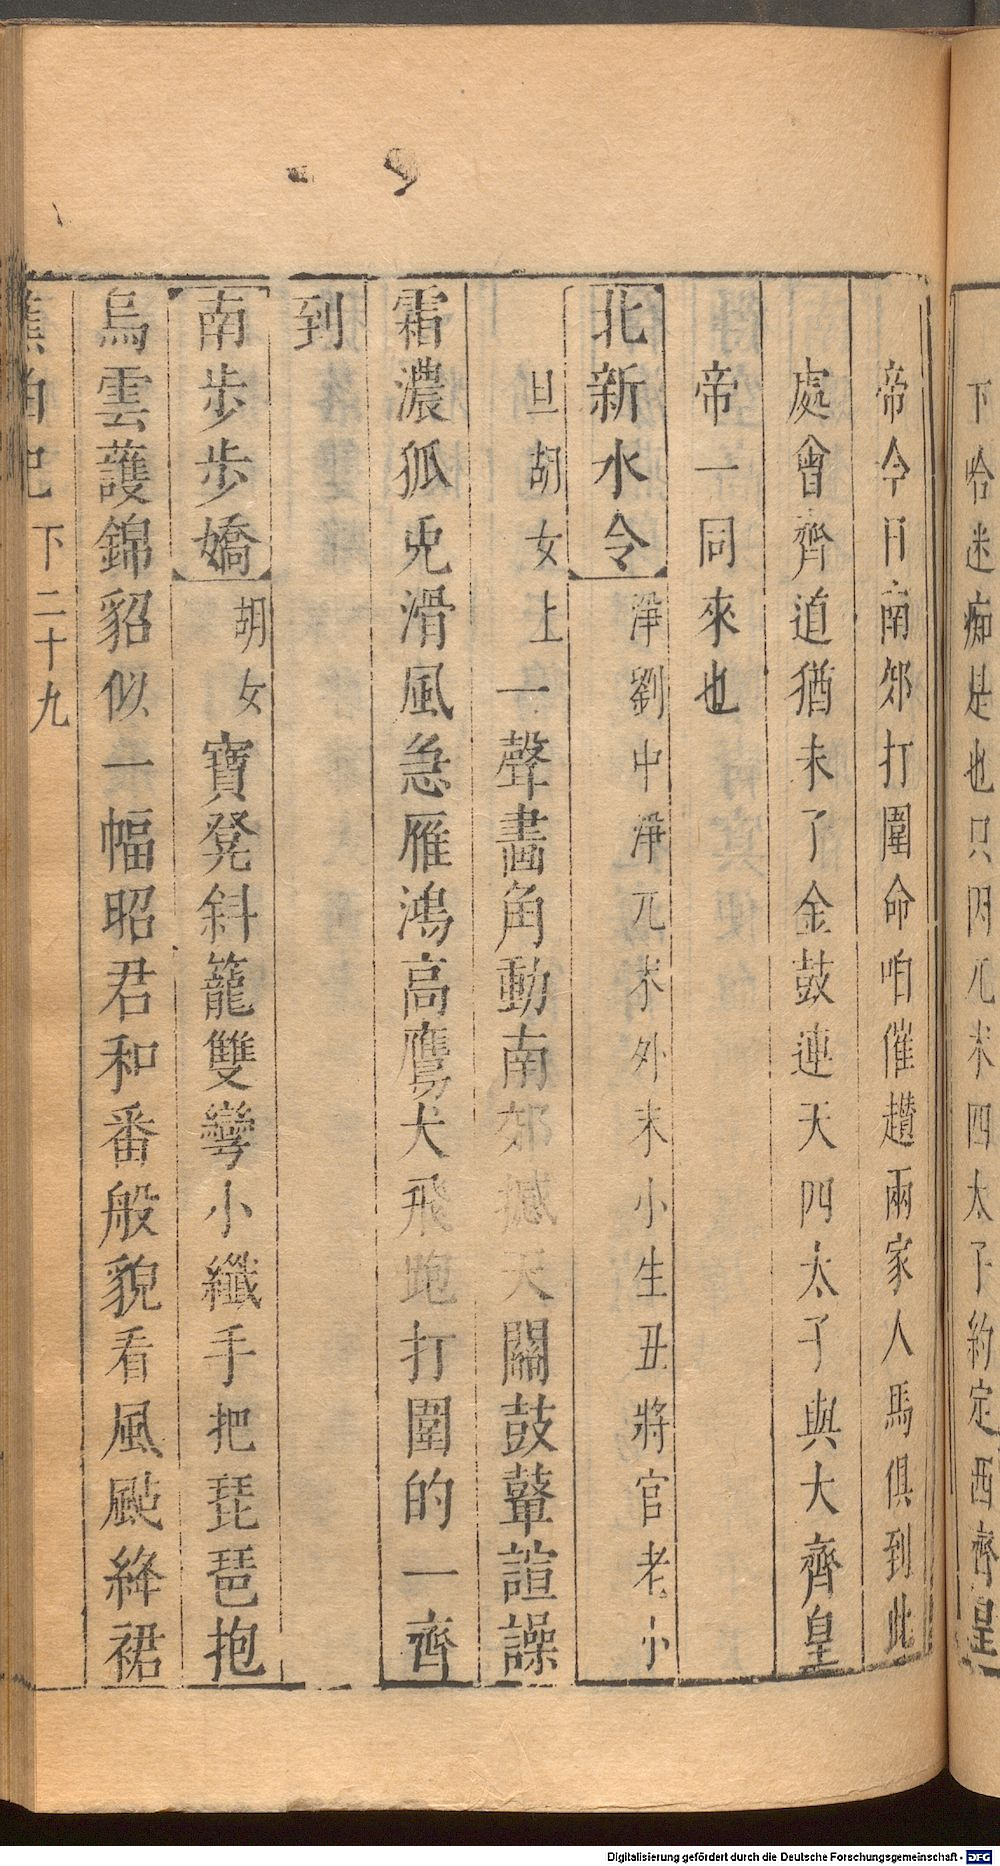 下哈迷痴是也只因兀朮四太子約定西齊皇
帝今日南郊打圍命咱催趲兩家人馬俱到此
處會齊道猶未了金鼓連天四太子與大齊皇
帝一同來也
北新水令 淨劉中淨兀朮外末小生丑將官老小
旦胡女上 一聲畫角動南郊撼天關鼓鼙諠譟
霜濃狐兎滑風急雁鴻高鷹犬飛跑打圍的一齊
到
南步步嬌 胡女 寶凳斜籠雙彎小纖手把琵琶抱
烏雲護錦貂似一幅昭君和番般貌看風颭絳裙
蕉帕記 下 二十九
Digitalisierung gefördert durch die Deutsche Forschungsgemeinschaft - DFG